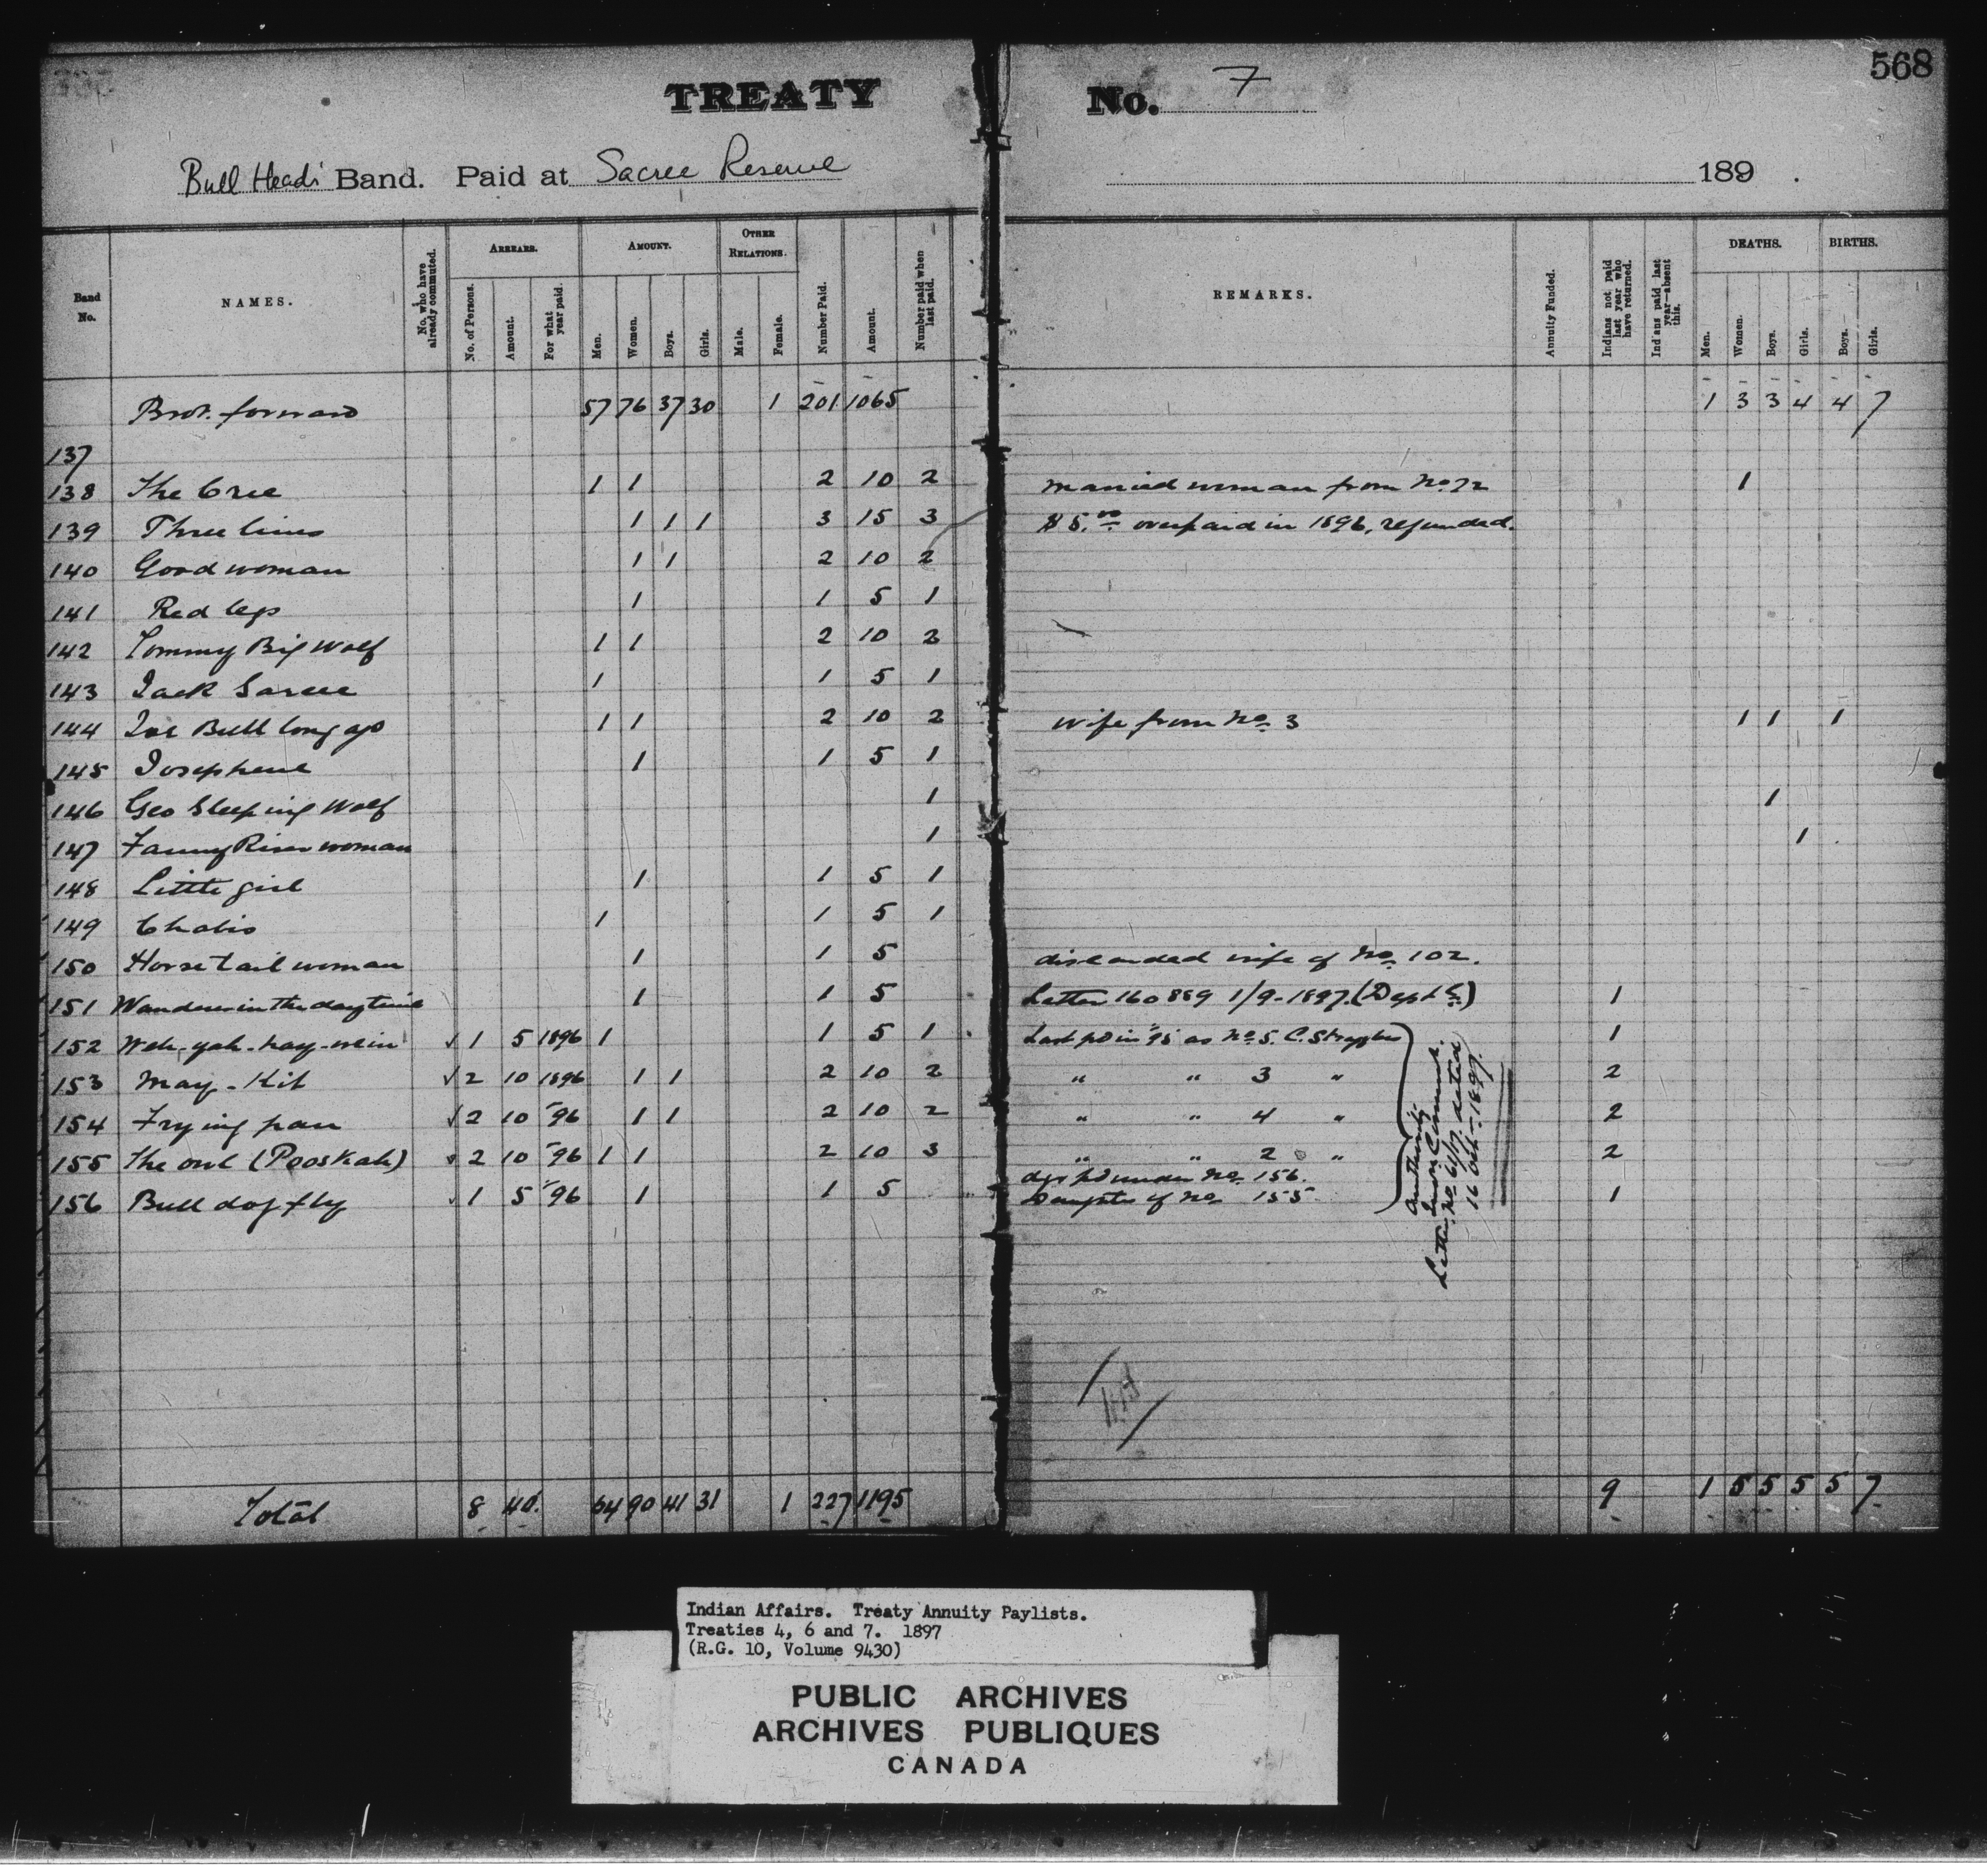 568
TREATY No. 7
Bull Head's Band. Paid at Sacree Reserve 189 .
Band No.
NAMES.
No. who have already commuted.
ARREARS.
No. of Persons.
Amount.
For what year paid.
AMOUNT.
Men.
Women.
Boys.
Girls.
OTHER RELATIONS.
Male.
Female.
Number Paid.
Amount.
Number paid when last paid.
REMARKS.
Annuity Funded.
Indians not paid last year who have returned.
Indians paid last year—absent this.
DEATHS.
Men.
Women.
Boys.
Girls.
BIRTHS.
Boys.
Girls.
Brot. forward 57 76 37 30 1 201 1065 1 3 3 4 4 7
137
138 The Cree 1 1 2 10 2 married woman from No. 72 1
139 Three lines 1 1 1 3 15 3 $5.00 overpaid in 1896, refunded.
140 Good woman 1 1 2 10 2
141 Red legs 1 1 5 1
142 Tommy Big Wolf 1 1 2 10 2
143 Jack Sarcee 1 1 5 1
144 Joe Bull long ago 1 1 2 10 2 wife from No. 3 1 1 1
145 Josephene 1 1 5 1
146 Geo Sleeping Wolf 1 1
147 Fanny River woman 1 1
148 Little girl 1 1 5 1
149 Chabis 1 1 5 1
150 Horse tail woman 1 1 5 discarded wife of No. 102.
151 Wanders in the day time 1 1 5 Letter 160889 1/9-1897. (Dept) 1
152 Weh-yah-kay-wein ✓ 1 5 1896 1 1 5 1 Last pd in '95 as No. 5. C. Stragglers 1
153 May-Kit ✓ 2 10 1896 1 1 2 10 2 " " 3 " 2
154 Frying pan ✓ 2 10 '96 1 1 2 10 2 " " 4 " 2
155 The owl (Peoskah) ✓ 2 10 '96 1 1 2 10 3 " " 2 " 2
dgr pd under No. 156.
156 Bull dog fly ✓ 1 5 '96 1 1 5 Daughter of No. 155 1
Authority
Indn. Commr.
Letter No. 61/17. dated
16 Oct - 1897.
Total 8 40. 64 90 41 31 1 227 1195 9 1 5 5 5 5 7
Indian Affairs. Treaty Annuity Paylists.
Treaties 4, 6 and 7. 1897
(R.G. 10, Volume 9430)
PUBLIC ARCHIVES
ARCHIVES PUBLIQUES
CANADA